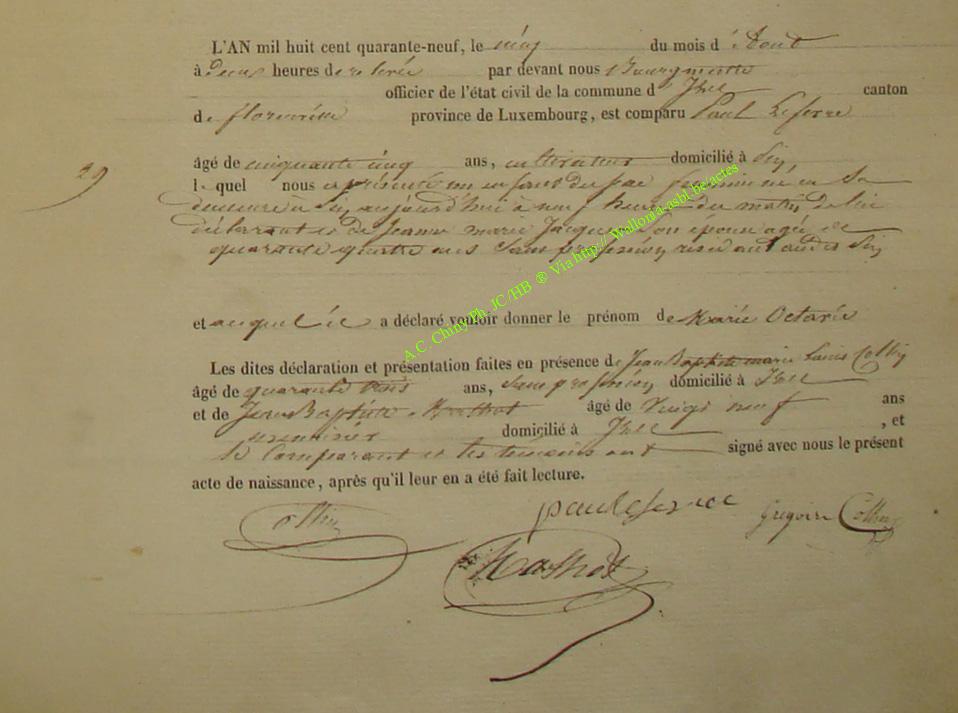 L'AN mil huit cent quarante-neuf, le cinq du mois d'Aout
à deux heures de relevée par devant nous Bourgmestre
officier de l'état civil de la commune d'Izel canton
de florenville province de Luxembourg, est comparu Paul Lefevre
âgé de cinquante cinq ans, cultivateur domicilié à
29
lequel nous a présenté un enfant du sexe feminin né en sa
demeure à aujourd'hui à neuf heures du matin, de lui
déclarant et de Jeanne marie Jacques son épouse agée de
quarante quatre ans sans profession residant audit
et auquel il a déclaré vouloir donner le prénom de Marie Octavie
Les dites déclaration et présentation faites en présence de Jean Baptiste marie Louis Collin
âgé de quarante trois ans, sans profession domicilié à Izel
et de Jean Baptiste âgé de Vingt neuf ans
domicilié à Izel , et
le Comparant et les temoins ont signé avec nous le présent
acte de naissance, après qu'il leur en a été fait lecture.
Collin paul lefevre Gregoire Collin
A.C. Chiny Ph. JC/HB ® Via http://Wallonia-asbl.be/actes